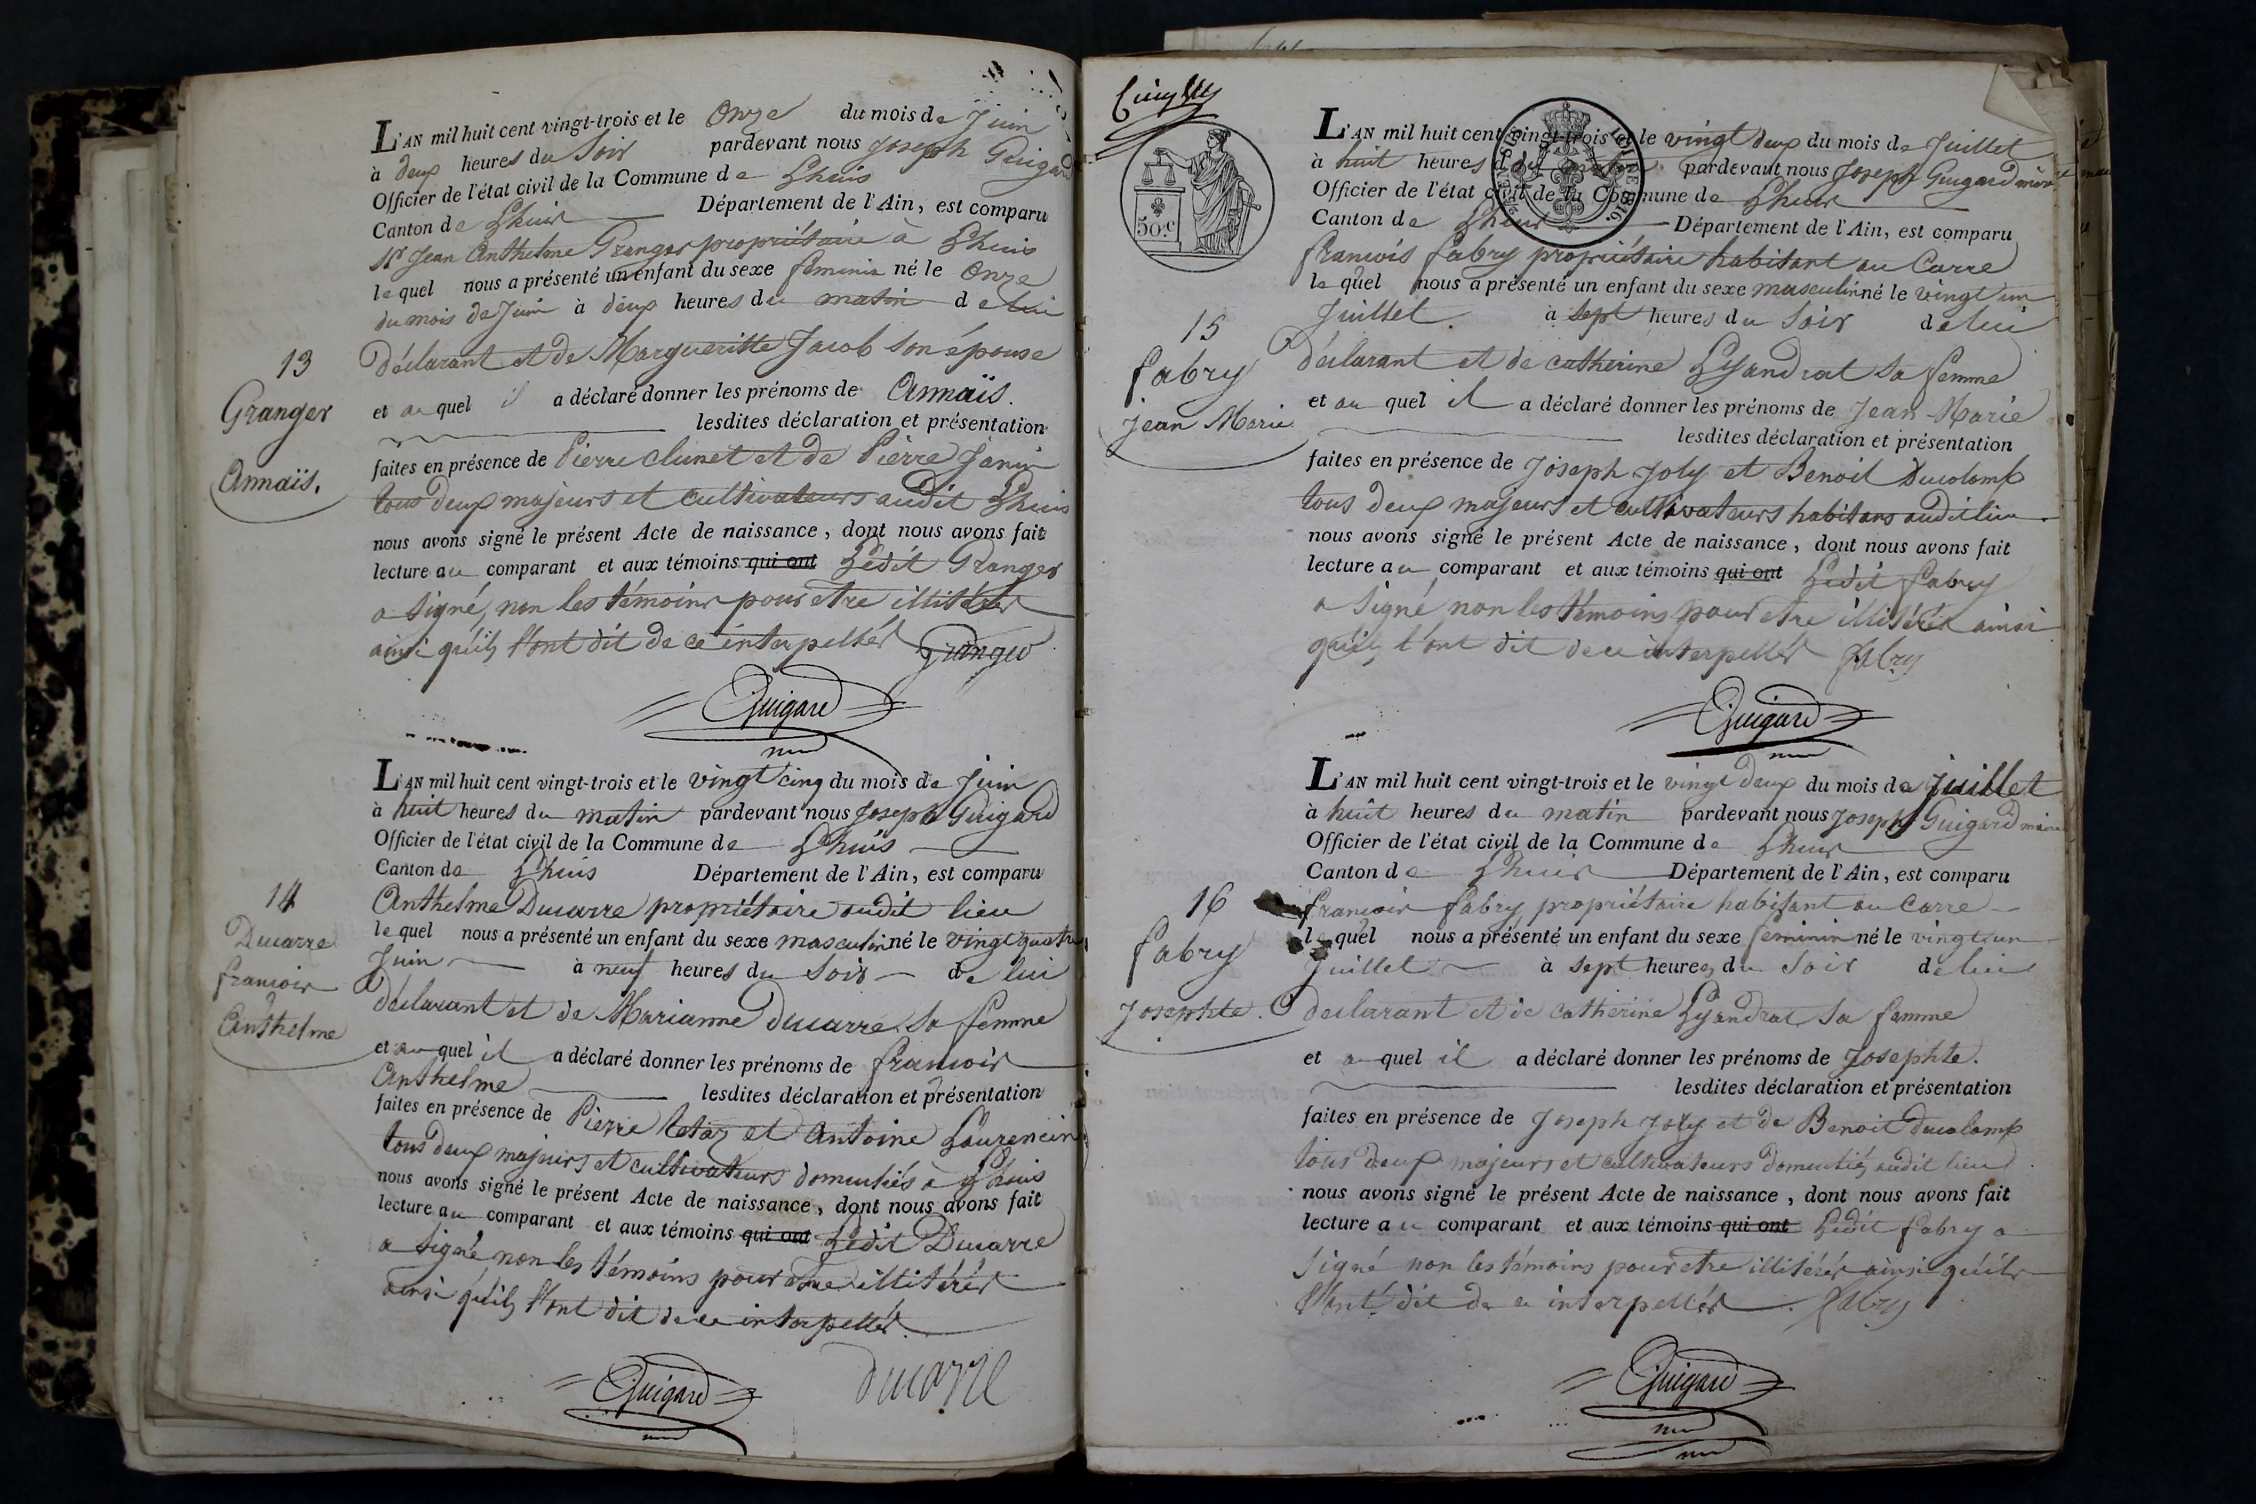 L'AN mil huit cent vingt-trois et le Onze du mois de Juin
à deux heures du Soir pardevant nous Joseph Guigard
Officier de l'état civil de la Commune de Lhuis
Canton de Lhuis Département de l'Ain, est comparu
Sr Jean Anthelme Granger propriétaire à Lhuis
lequel nous a présenté un enfant du sexe feminin né le Onze
du mois de Juin à deux heures du matin de lui
13
déclarant et de Margueritte Jacob son épouse
Granger
et au quel il a déclaré donner les prénoms de Annaïs.
lesdites déclaration et présentation
Annaïs.
faites en présence de Pierre Clunet et de Pierre Janin
tous deux majeurs et cultivateurs audit Lhuis
nous avons signé le présent Acte de naissance, dont nous avons fait
lecture au comparant et aux témoins qui ont Ledit Granger
a signé, non les témoins pour etre illitérés
ainsi qu'ils l'ont dit de ce interpellés Granger
Guigard
L'AN mil huit cent vingt-trois et le vingt cinq du mois de Juin
à huit heures du matin pardevant nous Joseph Guigard
Officier de l'état civil de la Commune de Lhuis
Canton de Lhuis Département de l'Ain, est comparu
14
Anthelme Ducarre propriétaire audit lieu
Ducarre
lequel nous a présenté un enfant du sexe masculin né le vingt quatre
francois
Juin à neuf heures du Soir de lui
Anthelme
déclarant et de Marianne Ducarre sa femme
et au quel il a déclaré donner les prénoms de francois
Anthelme lesdites déclaration et présentation
faites en présence de Pierre et Antoine Laurencin
tous deux majeurs et cultivateurs domiciliés à Lhuis
nous avons signé le présent Acte de naissance, dont nous avons fait
lecture au comparant et aux témoins qui ont Ledit Ducarre
a signé non les témoins pour etre illitérés
ainsi qu'ils l'ont dit de ce interpellés.
Guigard ducarre
50.c
L'AN mil huit cent vingt-trois et le vingt deux du mois de Juillet
à huit heures du matin pardevant nous Joseph Guigard maire
Officier de l'état civil de la Commune de Lhuis
Canton de Lhuis Département de l'Ain, est comparu
francois fabry propriétaire habitant au Carre
lequel nous a présenté un enfant du sexe masculin né le vingt un
Juillet à sept heures du Soir de lui
15
déclarant et de catherine Lysandrat sa femme
fabry
et au quel il a déclaré donner les prénoms de Jean Marie
jean Marie
lesdites déclaration et présentation
faites en présence de Joseph Joly et Benoit Ducolomb
tous deux majeurs et cultivateurs habitans audit lieu
nous avons signé le présent Acte de naissance, dont nous avons fait
lecture au comparant et aux témoins qui ont Ledit fabry
a signé non les témoins pour etre illitérés ainsi
qu'ils l'ont dit de ce interpellés fabry
Guigard
L'AN mil huit cent vingt-trois et le vingt deux du mois de Juillet
à huit heures du matin pardevant nous Joseph Guigard maire
Officier de l'état civil de la Commune de Lhuis
Canton de Lhuis Département de l'Ain, est comparu
16
francois fabry propriétaire habitant au Carre
fabry
lequel nous a présenté un enfant du sexe feminin né le vingt un
Juillet à sept heures du Soir de lui
Josephte.
declarant et de catherine Lysandrat sa femme
et au quel il a déclaré donner les prénoms de Josephte.
lesdites déclaration et présentation
faites en présence de Joseph Joly et de Benoit ducolomb
tous deux majeurs et cultivateurs domiciliés audit lieu
nous avons signé le présent Acte de naissance, dont nous avons fait
lecture au comparant et aux témoins qui ont Ledit fabry a
signé non les témoins pour etre illitérés ainsi qu'ils
l'ont dit de ce interpellés. fabry
Guigard